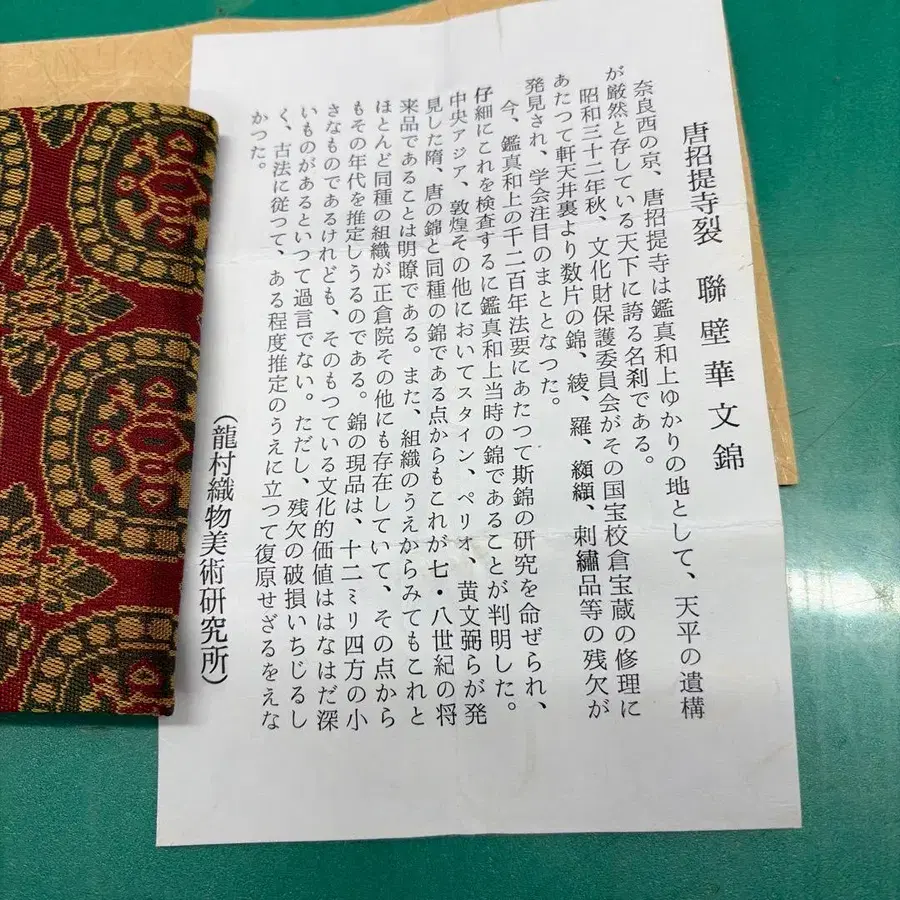 唐招提寺裂 聯璧華文錦
奈良西の京、唐招提寺は鑑真和上ゆかりの地として、天平の遺構
が厳然と存している天下に誇る名刹である。
昭和三十二年秋、文化財保護委員会がその国宝校倉宝蔵の修理に
あたつて軒天井裏より数片の錦、綾、羅、纐纈、刺繡品等の残欠が
発見され、学会注目のまととなつた。
今、鑑真和上の千二百年法要にあたつて斯錦の研究を命ぜられ、
仔細にこれを検査するに鑑真和上当時の錦であることが判明した。
中央アジア、敦煌その他においてスタイン、ペリオ、黄文弼らが発
見した隋、唐の錦と同種の錦である点からもこれが七・八世紀の将
来品であることは明瞭である。また、組織のうえからみてもこれと
ほとんど同種の組織が正倉院その他にも存在していて、その点から
もその年代を推定しうるのである。錦の現品は、十二ミリ四方の小
さなものであるけれども、そのもつている文化的価値ははなはだ深
いものがあるといつて過言でない。ただし、残欠の破損いちじるし
く、古法に従つて、ある程度推定のうえに立つて復原せざるをえな
かつた。
（龍村織物美術研究所）